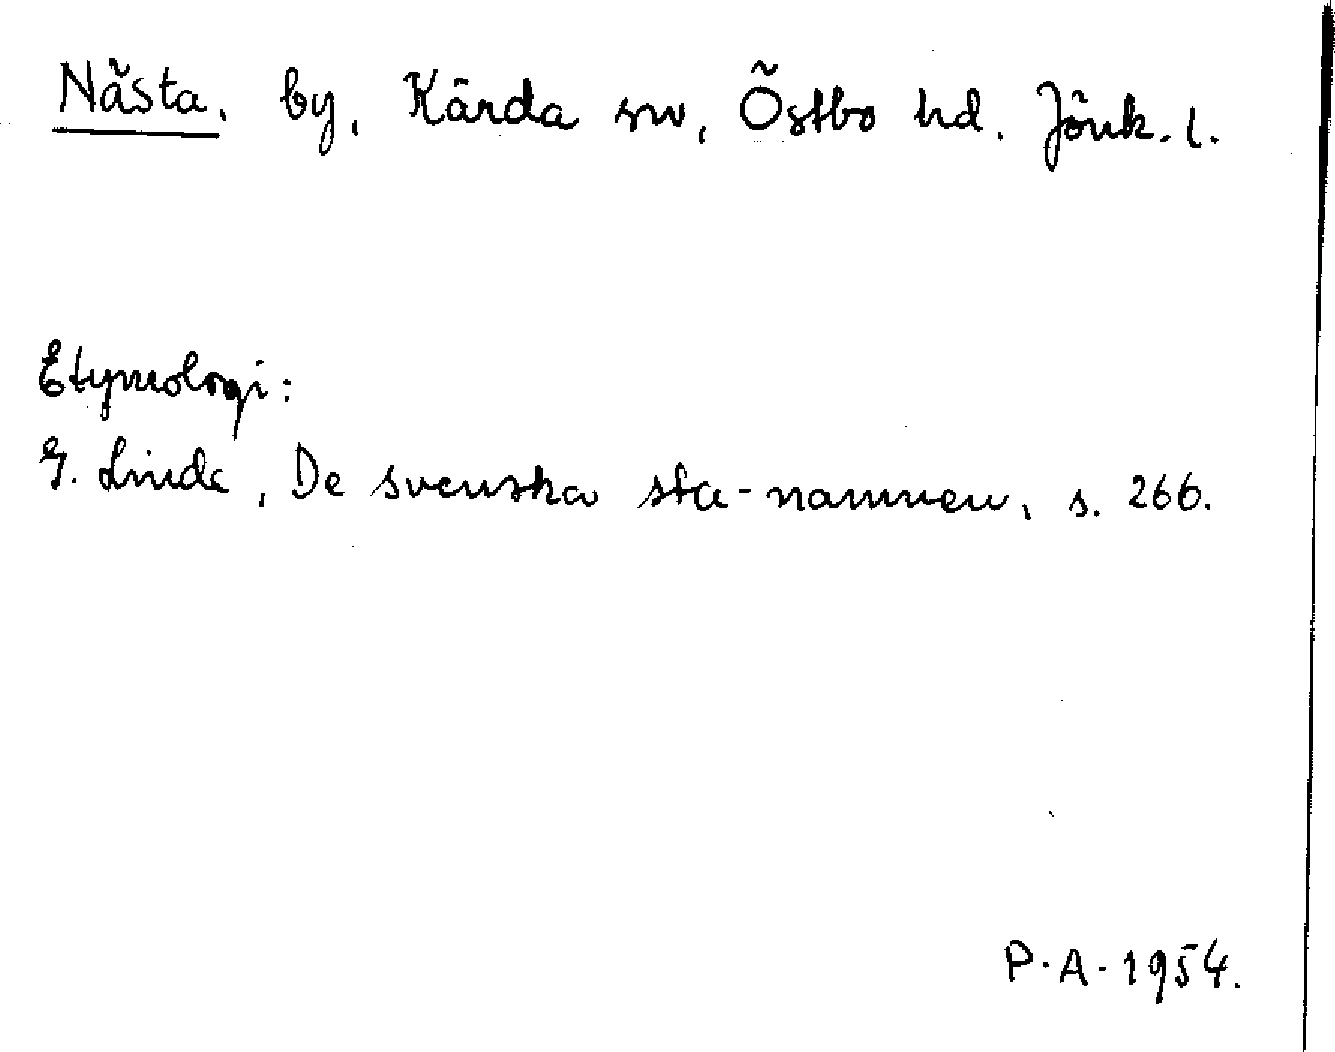 Nästa, by, Kärda sn, Östbo hd. Jönk. l.
Etymologi:
G. Linde, De svenska sta-namnen, s. 266.
P.A. 1954.